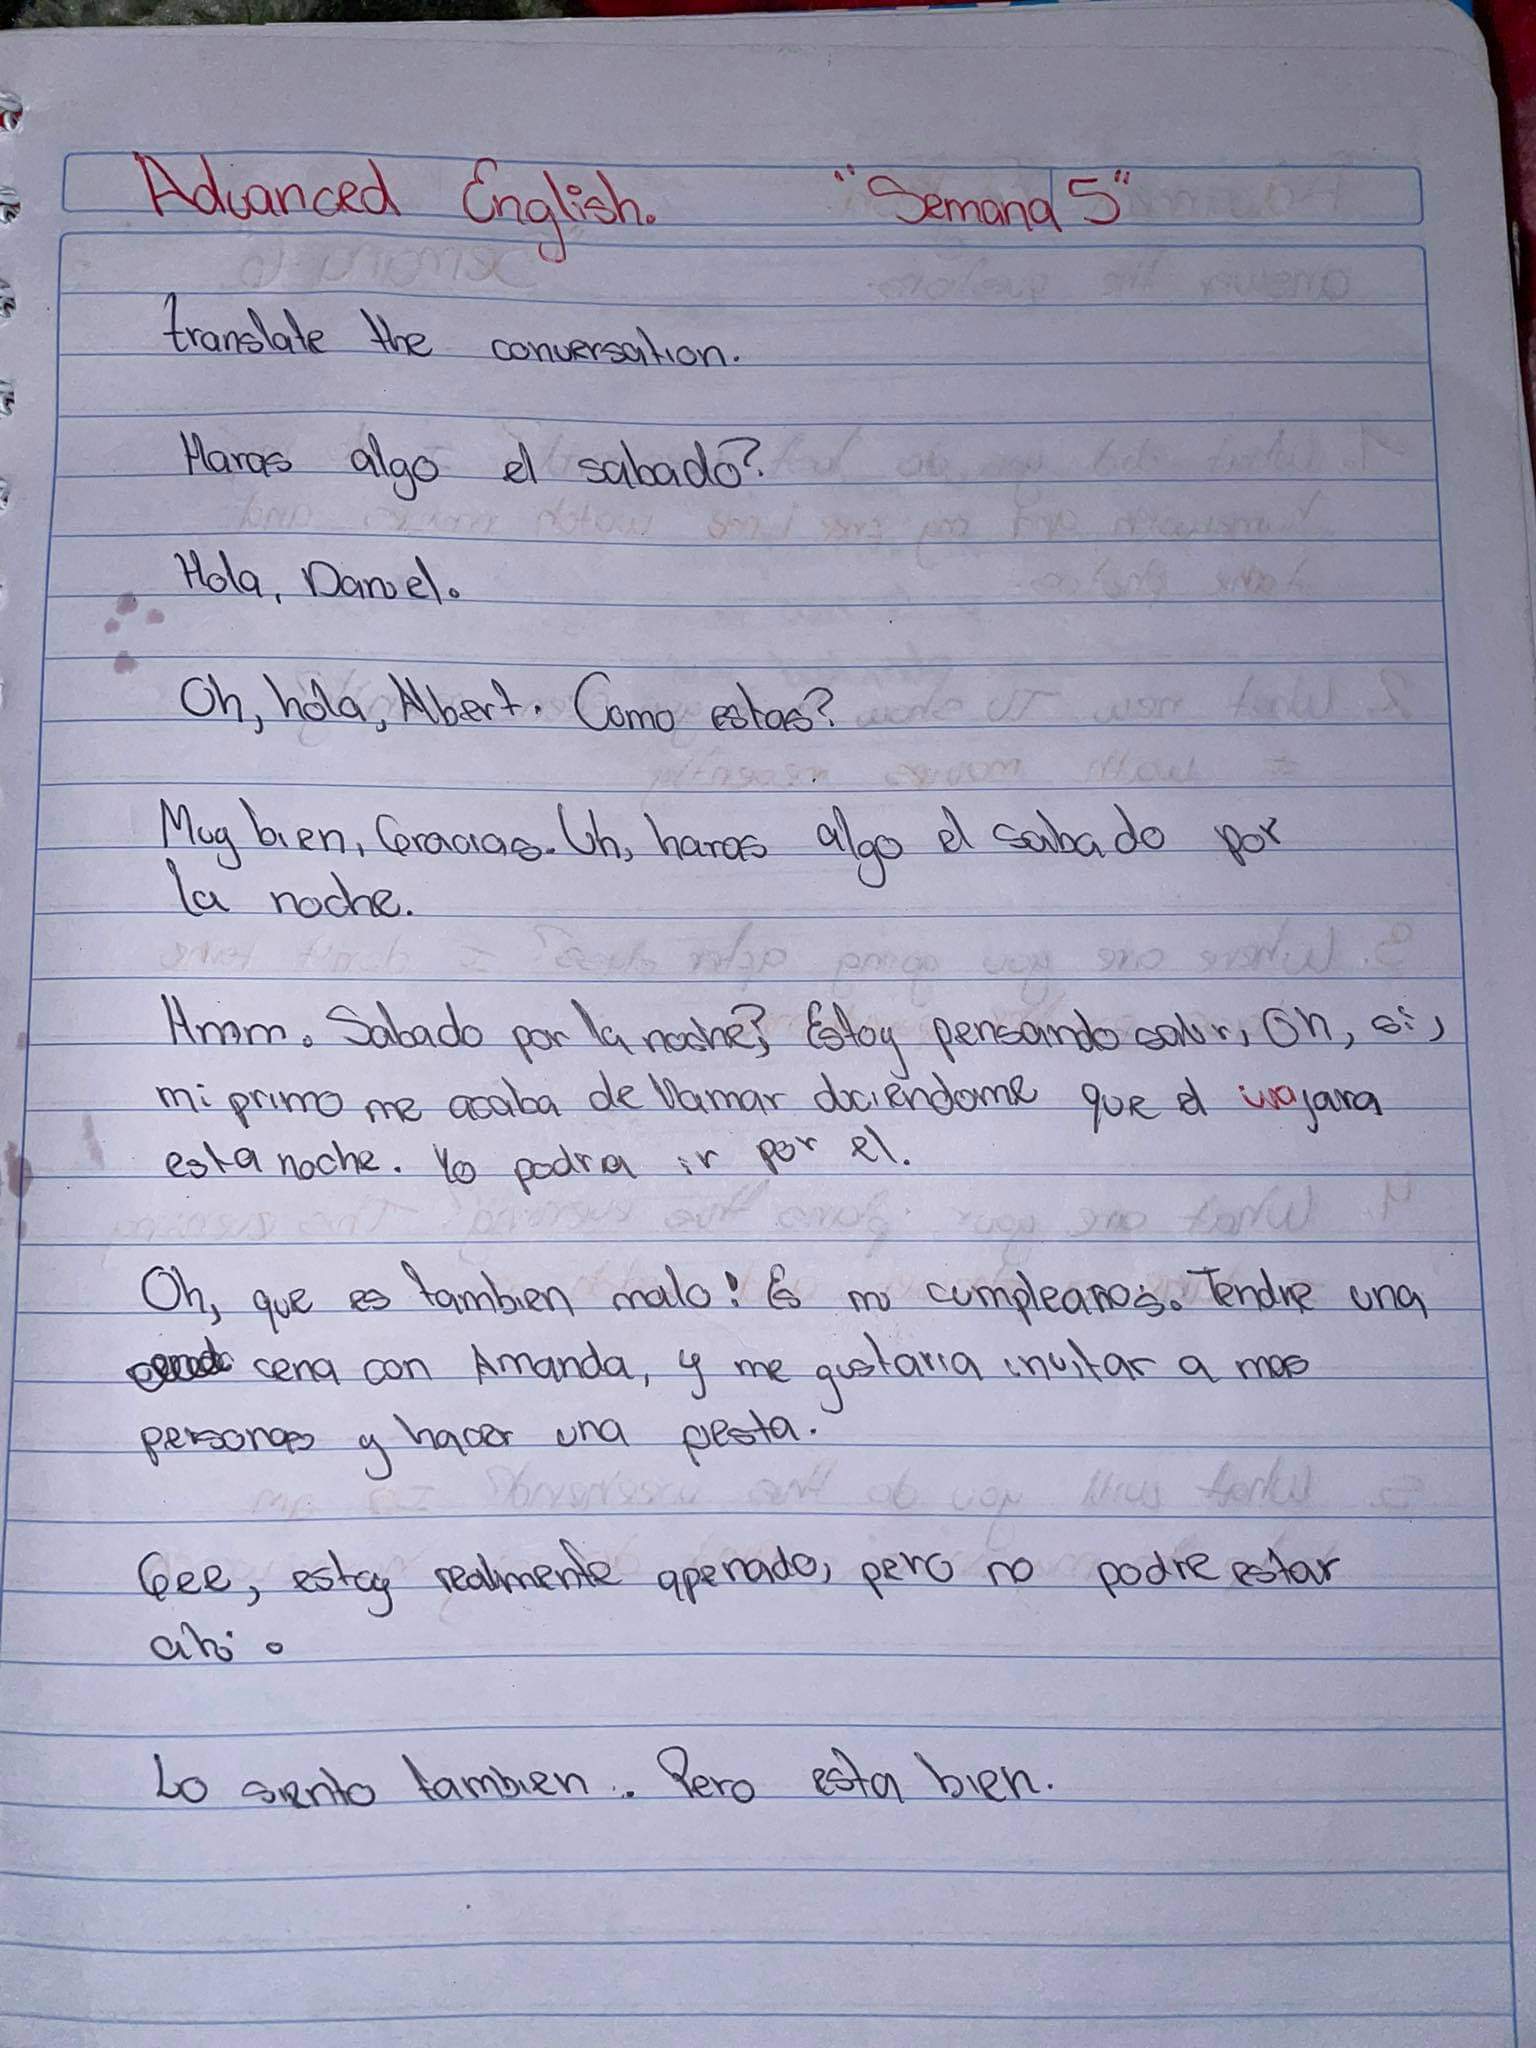 Advanced English. "Semana 5"
translate the conversation.
Haras algo el sabado?
Hola, Daniel.
Oh, hola, Albert. Como estas?
Muy bien, Gracias. Uh, haras algo el sabado por
la noche.
Hmm. Sabado por la noche? Estoy pensando salir, Oh, si,
mi primo me acaba de llamar diciendome que el viajara
esta noche. Yo podria ir por el.
Oh, que es tambien malo! Es mi cumpleaños. Tendre una
cena con Amanda, y me gustaria invitar a mas
personas y hacer una fiesta.
Gee, estoy realmente apenado, pero no podre estar
ahi.
Lo siento tambien. Pero esta bien.